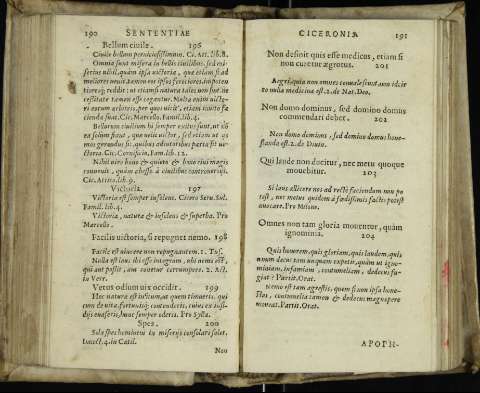 190 SENTENTIAE
Bellum ciuile. 196
Ciuile bellum perniciosissimum. Cic. Att. lib. 8.
Omnia sunt misera in bellis ciuilibus. sed mi-
serius nihil, quàm ipsa victoria, quae etiam si ad
meliores venit, tamen eos ipsos ferociores, impoten
tioresq; reddit: vt etiamsi natura tales non sint, ne
cessitate tamen esse cogantur. Multa enim victo-
ri eorum arbitrio, per quos vicit, etiam inuito fa
cienda sunt. Cic. Marcello. Famil. lib. 4.
Bellorum ciuilium hi semper exitus sunt, vt nō
ea solùm fiant, quae velit victor, sed etiam vt os
mos gerendus sit, quibus adiutoribus parta sit vi-
ctoria. Cic. Cornificio. Fam. lib. 12.
Nihil viro bono & quieto & bono ciui magis
conuenit, quàm abesse à ciuilibus controuersijs.
Cic. Attico. lib. 9.
Victoria. 197
Victoria est semper insolens. Cicero Seru. Sul.
Famil. lib. 4.
Victoria, natura & insolens & superba. Pro
Marcello.
Facilis uictoria, si repugnet nemo. 198
Facile est vincere non repugnantem. 1. Tus.
Nulla est laus ibi esse integrum, vbi nemo est,
qui aut possit, aut conetur corrumpere. 2. Act.
in Verr.
Vetus odium uix occidit. 199
Hec natura est insitum, ut quem timueris, qui
cum de uita, fortunisq; contenderis, cuius ex insi-
dijs euaseris, hunc semper oderis. Pro Sylla.
Spes. 200
Sola spes hominem in miserijs consolari solet.
Inuect. 4. in Catil.
Non
CICERONIS 191
Non desinit quis esse medicus, etiam si
non curet aegrotus. 201
Aegri, quia non omnes conualescunt, non idcir
co nulla medicina est. 2. de Nat. Deo.
Non domo dominus, sed domino domus
commendari debet. 202
Non domo dominus, sed domino domus hone-
standa est. 2. de Diuin.
Qui laude non ducitur, nec metu quoque
mouebitur. 203
Si laus allicere nos ad rectè faciendum non po
test, nec metus quidem à foedissimis factis potest
auocare. Pro Milone.
Omnes non tam gloria mouentur, quàm
ignominia. 204
Quis honorem, quis gloriam, quis laudem, quis
unum decus tam unquam expetit, quàm ut igno-
miniam, infamiam, contumeliam, dedecus fu-
giat? Partit. Orat.
Nemo est tam agrestis, quem si non ipsa hone-
stas, contumelia tamen & dedecus magnopere
moueat. Partit. Orat.
APOPH-